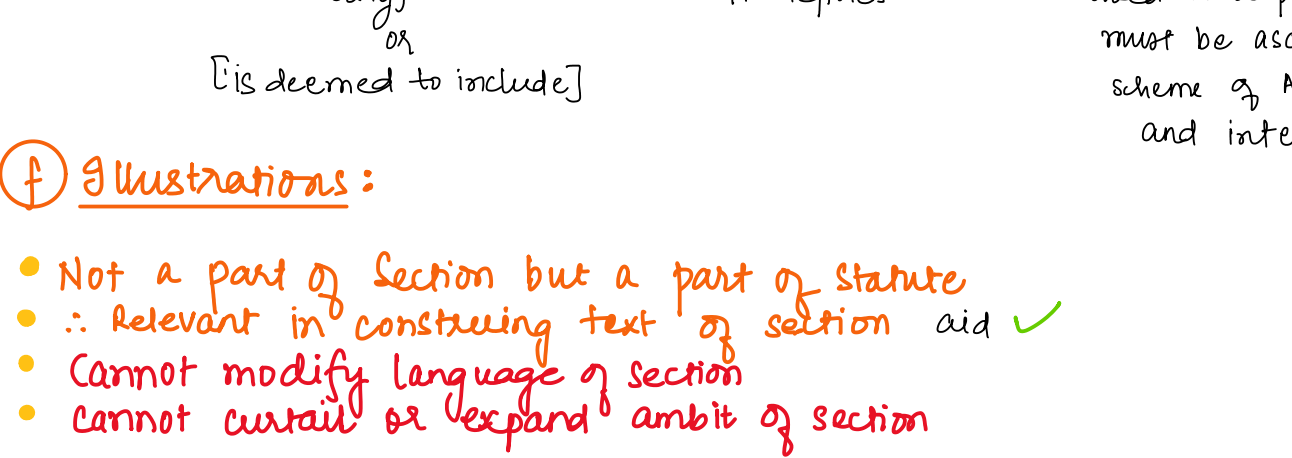 or
['is deemed to include]
must be
scheme of
and
f Illustrations:
Not a part of Section but a part of statute
∴ Relevant in construing text of section aid ✓
Cannot modify language of section
Cannot curtail or expand ambit of section